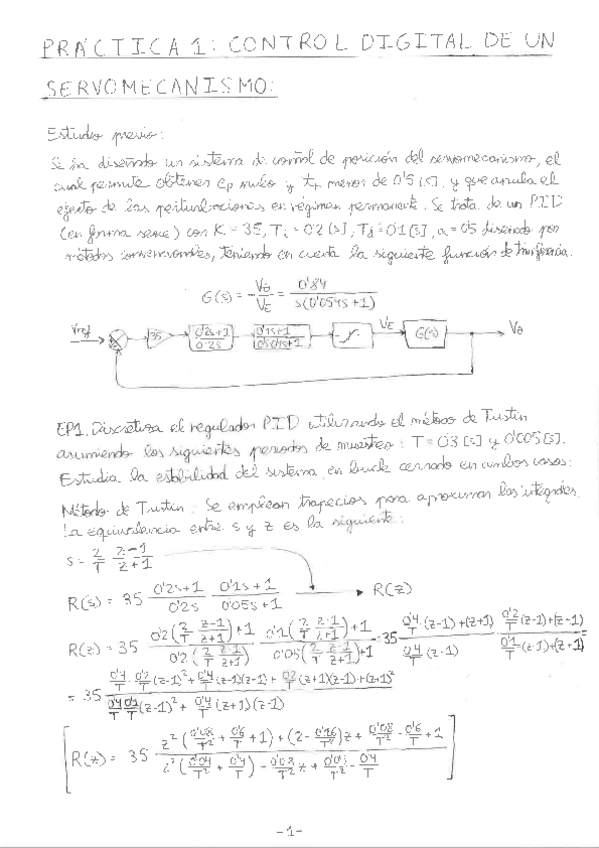 PRÁCTICA 1: CONTROL DIGITAL DE UN
SERVOMECANISMO:
Estudio previo:
Se ha diseñado un sistema de control de posición del servomecanismo, el
cual permite obtener ep nulo y tp menor de 0'5 [s], y que anula el
efecto de las perturbaciones en régimen permanente. Se trata de un PID
(en forma serie) con K = 35, Ti = 0'2 [s], Td = 0'1 [s], a = 0'5 diseñado por
métodos convencionales, teniendo en cuenta la siguiente función de transferencia.
G(s) = -Vθ/VE = 0'84/(s(0'054s+1))
Vref 35 (0'2s+1)/(0'2s) (0'1s+1)/(0'05s+1) VE G(s) Vθ
EP1. Discretiza el regulador PID utilizando el método de Tustin
asumiendo los siguientes periodos de muestreo: T = 0'3 [s] y 0'005 [s].
Estudia la estabilidad del sistema en bucle cerrado en ambos casos:
Método de Tustin: Se emplean trapecios para aproximar las integrales.
La equivalencia entre s y z es la siguiente:
s = 2/T (z-1)/(z+1)
R(s) = 35 (0'2s+1)/(0'2s) (0'1s+1)/(0'05s+1) → R(z)
R(z) = 35 (0'2(2/T (z-1)/(z+1))+1)/(0'2(2/T (z-1)/(z+1))) (0'1(2/T (z-1)/(z+1))+1)/(0'05(2/T (z-1)/(z+1))+1) = 35 (0'4/T (z-1)+(z+1))/(0'4/T (z-1)) (0'2/T (z-1)+(z+1))/(0'1/T (z-1)+(z+1)) =
= 35 (0'4/T 0'2/T (z-1)²+0'4/T (z+1)(z-1)+0'2/T (z+1)(z-1)+(z+1)²)/(0'4/T 0'1/T (z-1)²+0'4/T (z+1)(z-1))
R(z) = 35 (z²(0'08/T²+0'6/T+1)+(2-0'16/T²)z+0'08/T²-0'6/T+1)/(z²(0'04/T²+0'4/T)-0'08/T² z+0'04/T²-0'4/T)
-1-